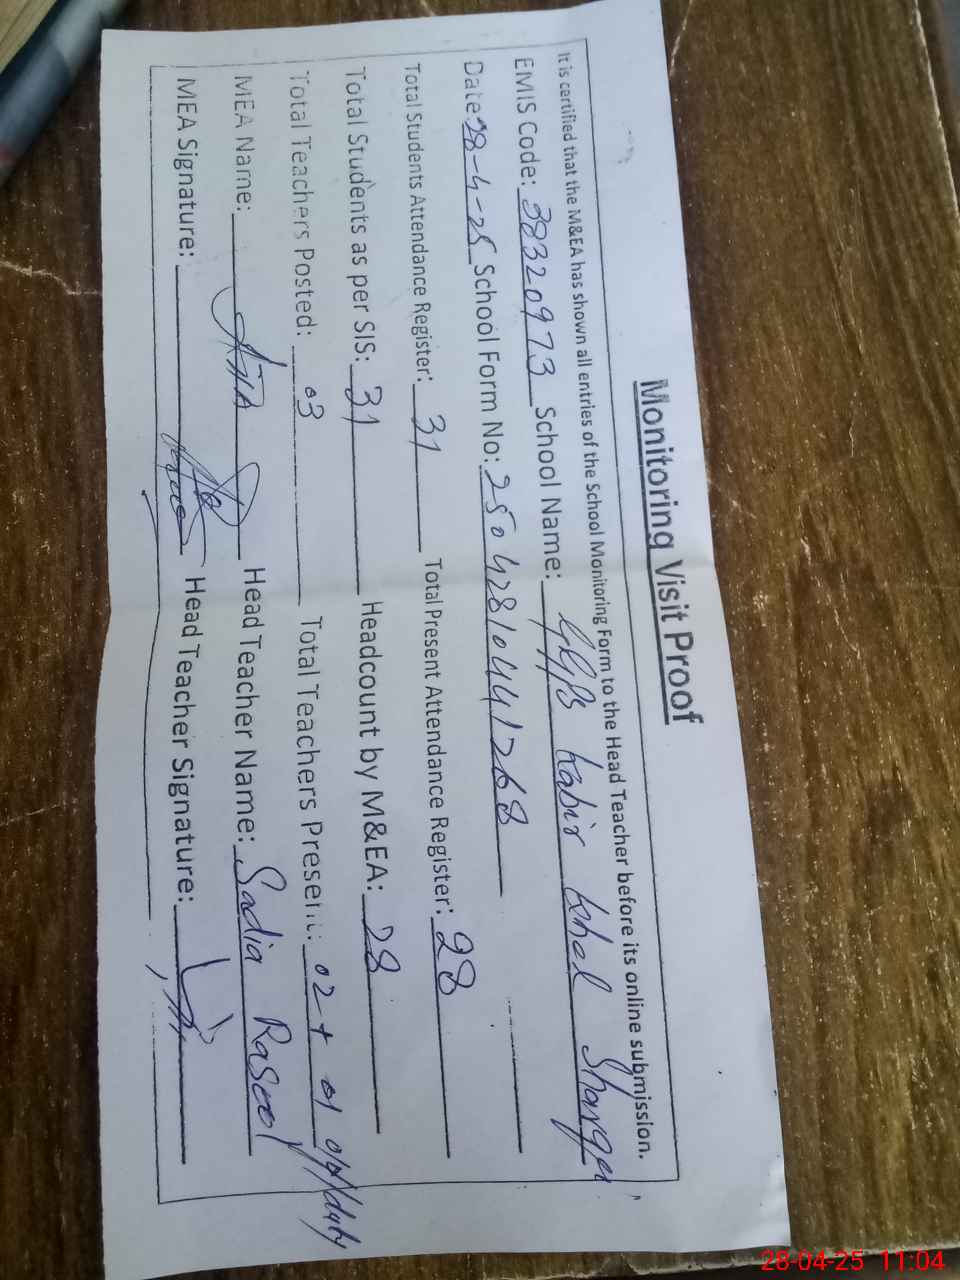 Monitoring Visit Proof
It is certified that the M&EA has shown all entries of the School Monitoring Form to the Head Teacher before its online submission.
EMIS Code: 38320973 School Name: GGPS Kabir Khel Sharqi
Date: 28-4-25 School Form No: 25042810441268
Total Students Attendance Register: 31 Total Present Attendance Register: 28
Total Students as per SIS: 31 Headcount by M&EA: 28
Total Teachers Posted: 03 Total Teachers Present: 02 + 01 off/duty
MEA Name: Head Teacher Name: Sadia Rasool
MEA Signature: Head Teacher Signature:
28-04-25 11:04